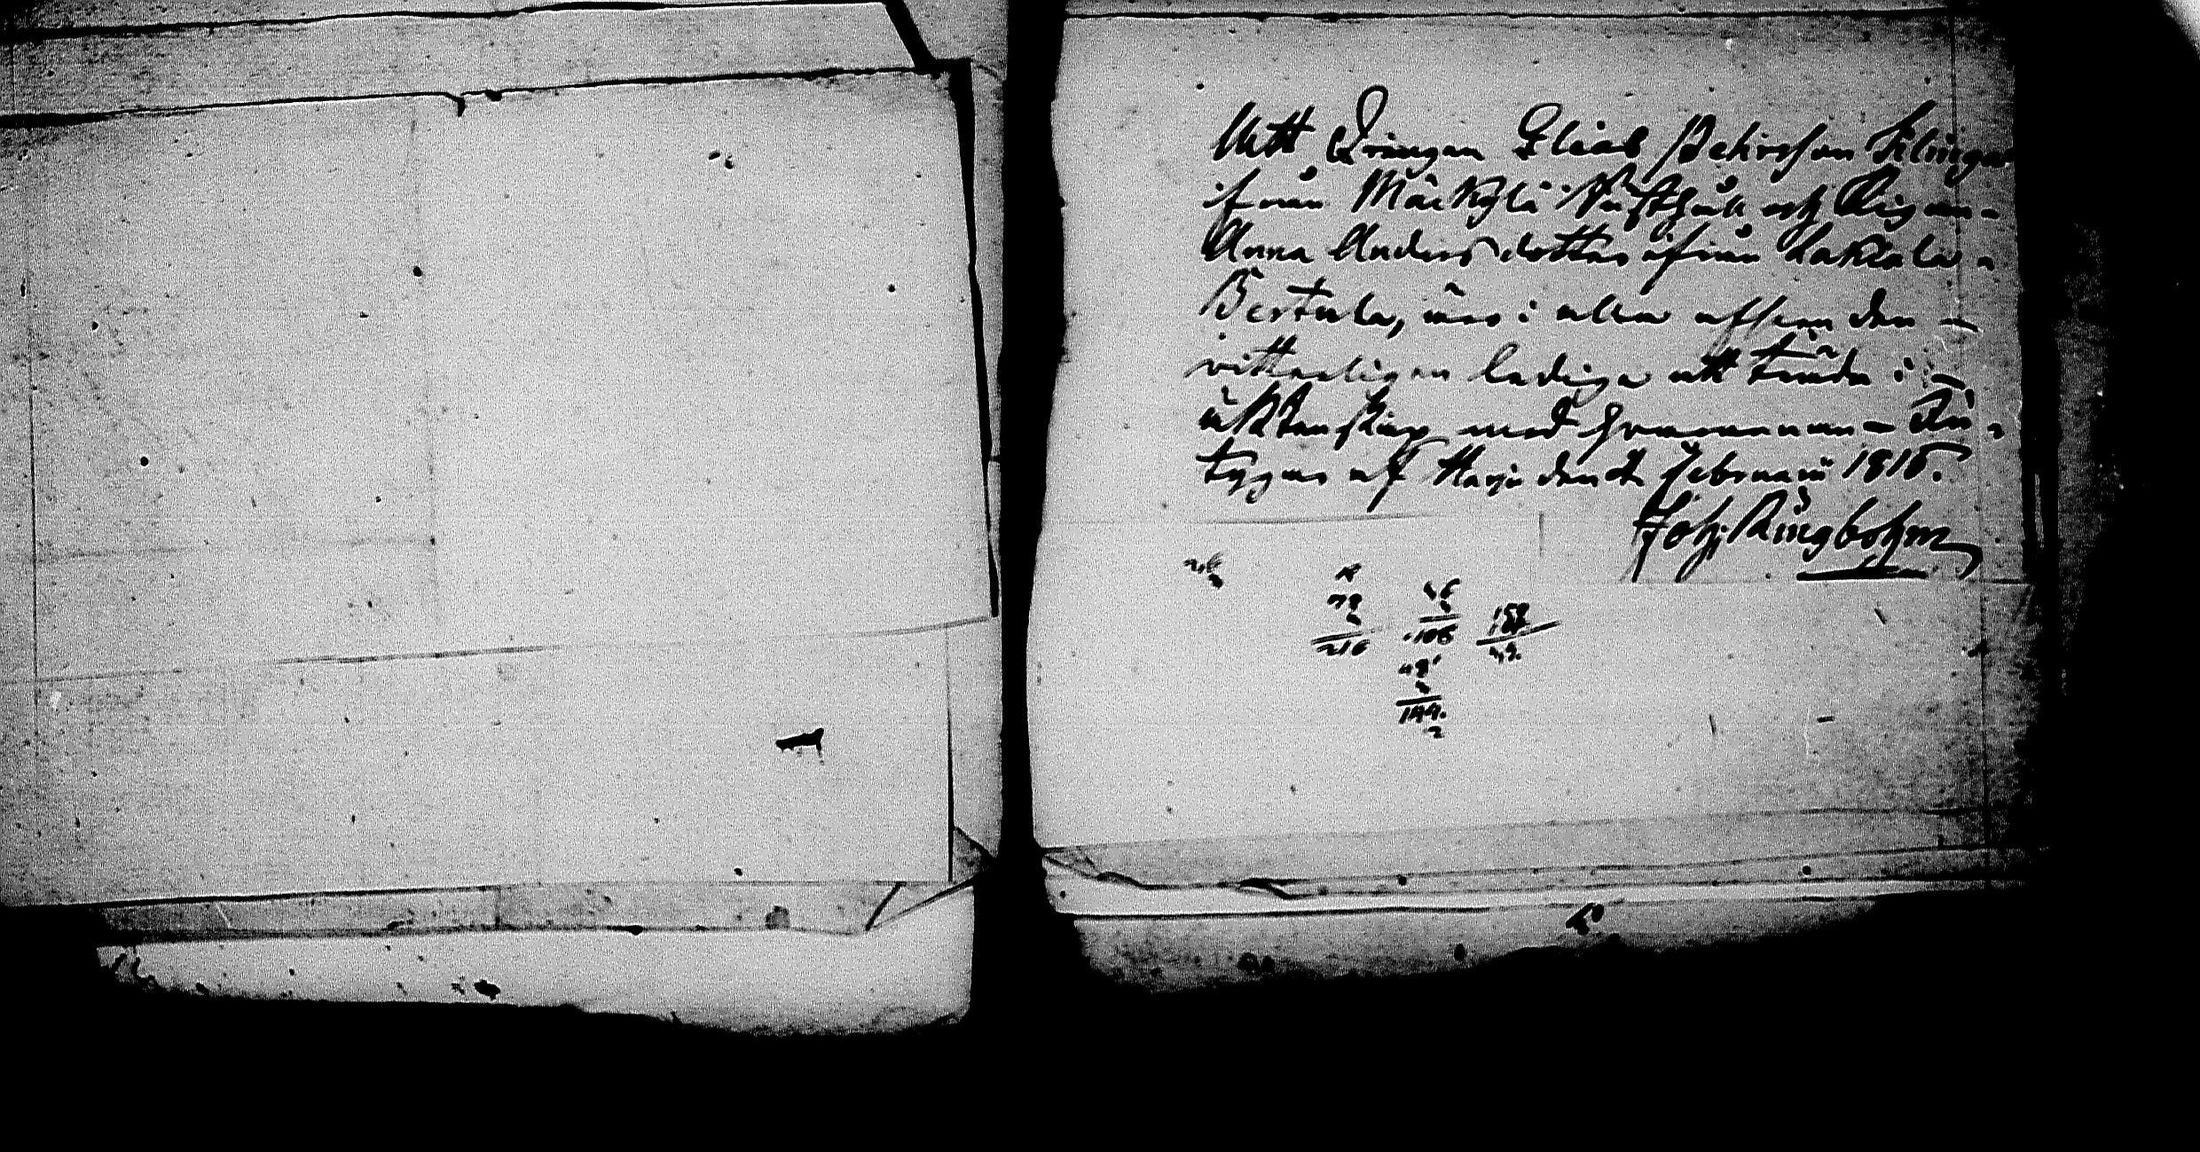 Att Drängen Elias Pehrsson Klinga
ifrån Märkylä Rusthåll och Pigan
Anna Andersdotter ifrån Lakiala
Bertula, äro i allo afseenden
vitterligen lediga att träda i
äktenskap med hvarannan
tygas af Harju den Februarii 1818.
Joh. Ringbohm
216
108
144